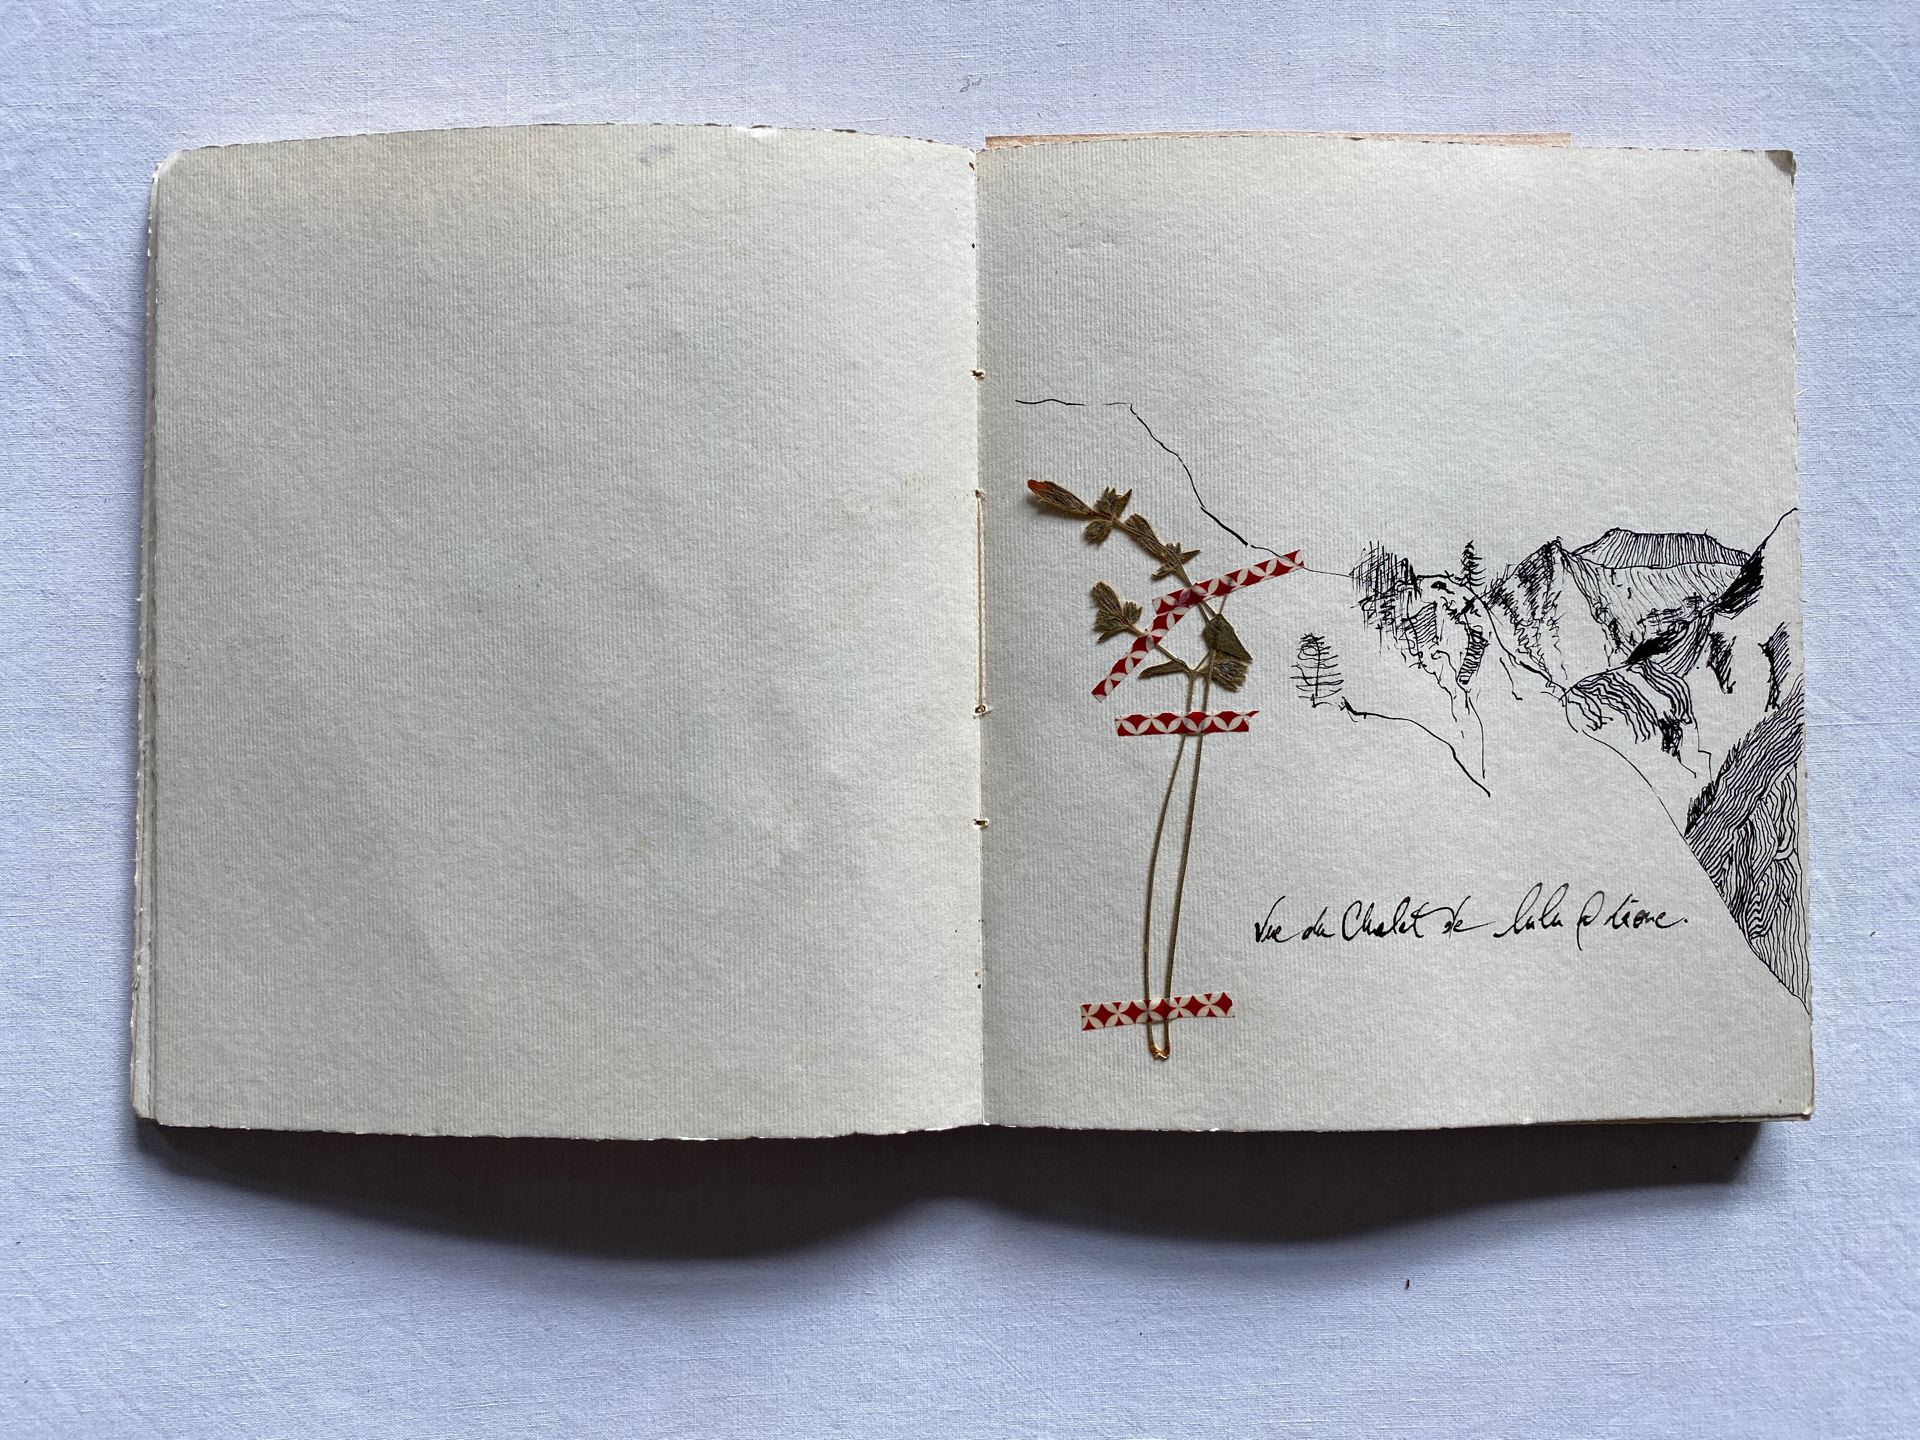 Vue du Chalet de lulu